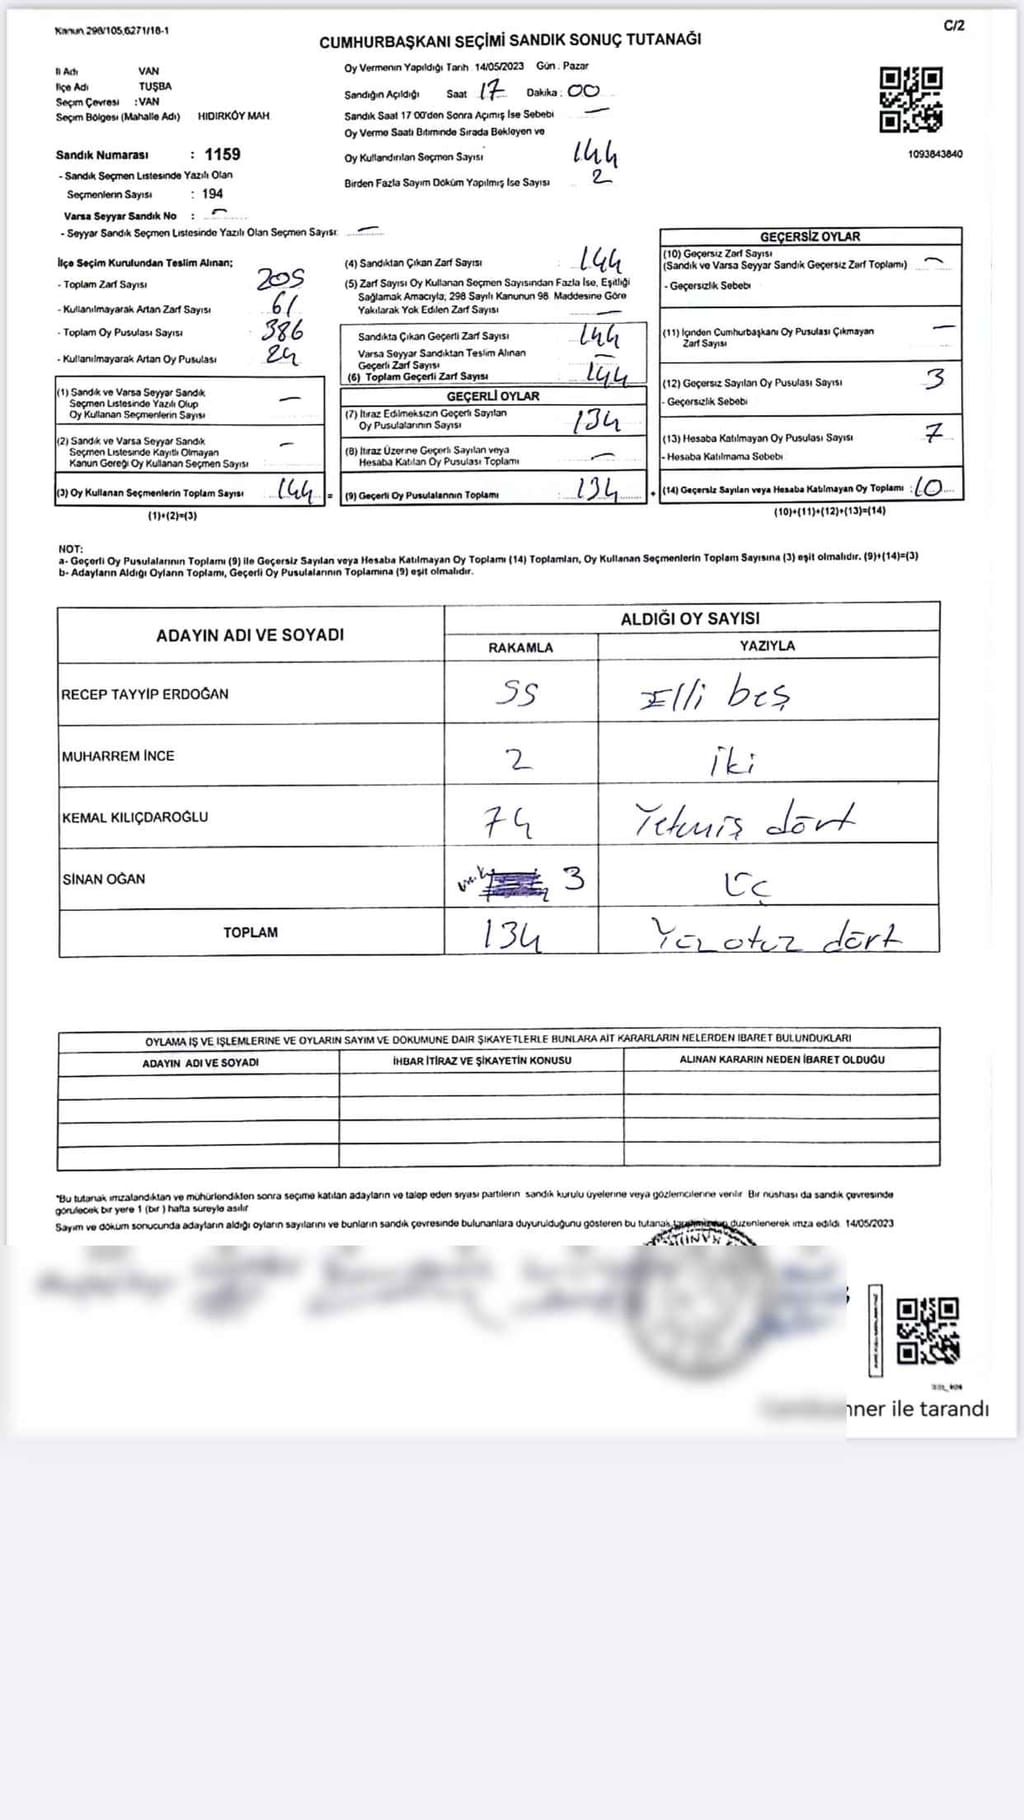 Kanun 298/105,6271/18-1
C/2
CUMHURBAŞKANI SEÇİMİ SANDIK SONUÇ TUTANAĞI
İl Adı VAN
İlçe Adı TUŞBA
Seçim Çevresi : VAN
Seçim Bölgesi (Mahalle Adı) HIDIRKÖY MAH
Oy Vermenin Yapıldığı Tarih 14/05/2023 Gün : Pazar
Sandığın Açıldığı Saat 17 Dakika : 00
Sandık Saat 17 00'den Sonra Açımış İse Sebebi —
Oy Verme Saati Bitiminde Sırada Bekleyen ve
Oy Kullandırılan Seçmen Sayısı 144
Birden Fazla Sayım Döküm Yapılmış İse Sayısı 2
1093843840
Sandık Numarası : 1159
- Sandık Seçmen Listesinde Yazılı Olan
Seçmenlerin Sayısı : 194
Varsa Seyyar Sandık No : —
- Seyyar Sandık Seçmen Listesinde Yazılı Olan Seçmen Sayısı: —
İlçe Seçim Kurulundan Teslim Alınan;
- Toplam Zarf Sayısı 205
- Kullanılmayarak Artan Zarf Sayısı 61
- Toplam Oy Pusulası Sayısı 386
- Kullanılmayarak Artan Oy Pusulası 24
(1) Sandık ve Varsa Seyyar Sandık
Seçmen Listesinde Yazılı Olup
Oy Kullanan Seçmenlerin Sayısı —
(2) Sandık ve Varsa Seyyar Sandık
Seçmen Listesinde Kayıtlı Olmayan
Kanun Gereği Oy Kullanan Seçmen Sayısı —
(3) Oy Kullanan Seçmenlerin Toplam Sayısı 144 =
(1)+(2)=(3)
(4) Sandıktan Çıkan Zarf Sayısı : 144
(5) Zarf Sayısı Oy Kullanan Seçmen Sayısından Fazla İse, Eşitliği
Sağlamak Amacıyla; 298 Sayılı Kanunun 98. Maddesine Göre
Yakılarak Yok Edilen Zarf Sayısı —
Sandıkta Çıkan Geçerli Zarf Sayısı 144
Varsa Seyyar Sandıktan Teslim Alınan
Geçerli Zarf Sayısı —
(6) Toplam Geçerli Zarf Sayısı 144
GEÇERLİ OYLAR
(7) İtiraz Edilmeksizin Geçerli Sayılan
Oy Pusulalarının Sayısı 134
(8) İtiraz Üzerine Geçerli Sayılan veya
Hesaba Katılan Oy Pusulası Toplamı —
(9) Geçerli Oy Pusulalarının Toplamı : 134 +
GEÇERSİZ OYLAR
(10) Geçersiz Zarf Sayısı
(Sandık ve Varsa Seyyar Sandık Geçersiz Zarf Toplamı) —
- Geçersizlik Sebebi
(11) İçinden Cumhurbaşkanı Oy Pusulası Çıkmayan
Zarf Sayısı —
(12) Geçersiz Sayılan Oy Pusulası Sayısı 3
- Geçersizlik Sebebi
(13) Hesaba Katılmayan Oy Pusulası Sayısı 7
- Hesaba Katılmama Sebebi
(14) Geçersiz Sayılan veya Hesaba Katılmayan Oy Toplamı : 10
(10)+(11)+(12)+(13)=(14)
NOT:
a- Geçerli Oy Pusulalarının Toplamı (9) ile Geçersiz Sayılan veya Hesaba Katılmayan Oy Toplamı (14) Toplamları, Oy Kullanan Seçmenlerin Toplam Sayısına (3) eşit olmalıdır. (9)+(14)=(3)
b- Adayların Aldığı Oyların Toplamı, Geçerli Oy Pusulalarının Toplamına (9) eşit olmalıdır.
ADAYIN ADI VE SOYADI
ALDIĞI OY SAYISI
RAKAMLA YAZIYLA
RECEP TAYYİP ERDOĞAN 55 Elli beş
MUHARREM İNCE 2 iki
KEMAL KILIÇDAROĞLU 74 Yetmiş dört
SİNAN OĞAN 3 Üç
TOPLAM 134 Yüz otuz dört
OYLAMA İŞ VE İŞLEMLERİNE VE OYLARIN SAYIM VE DÖKÜMÜNE DAİR ŞİKAYETLERLE BUNLARA AİT KARARLARIN NELERDEN İBARET BULUNDUKLARI
ADAYIN ADI VE SOYADI İHBAR İTİRAZ VE ŞİKAYETİN KONUSU ALINAN KARARIN NEDEN İBARET OLDUĞU
*Bu tutanak imzalandıktan ve mühürlendikten sonra seçime katılan adayların ve talep eden siyasi partilerin sandık kurulu üyelerine veya gözlemcilerine verilir Bir nüshası da sandık çevresinde
görülecek bir yere 1 (bir ) hafta süreyle asılır
Sayım ve döküm sonucunda adayların aldığı oyların sayılarını ve bunların sandık çevresinde bulunanlara duyurulduğunu gösteren bu tutanak düzenlenerek imza edildi 14/05/2023
nner ile tarandı